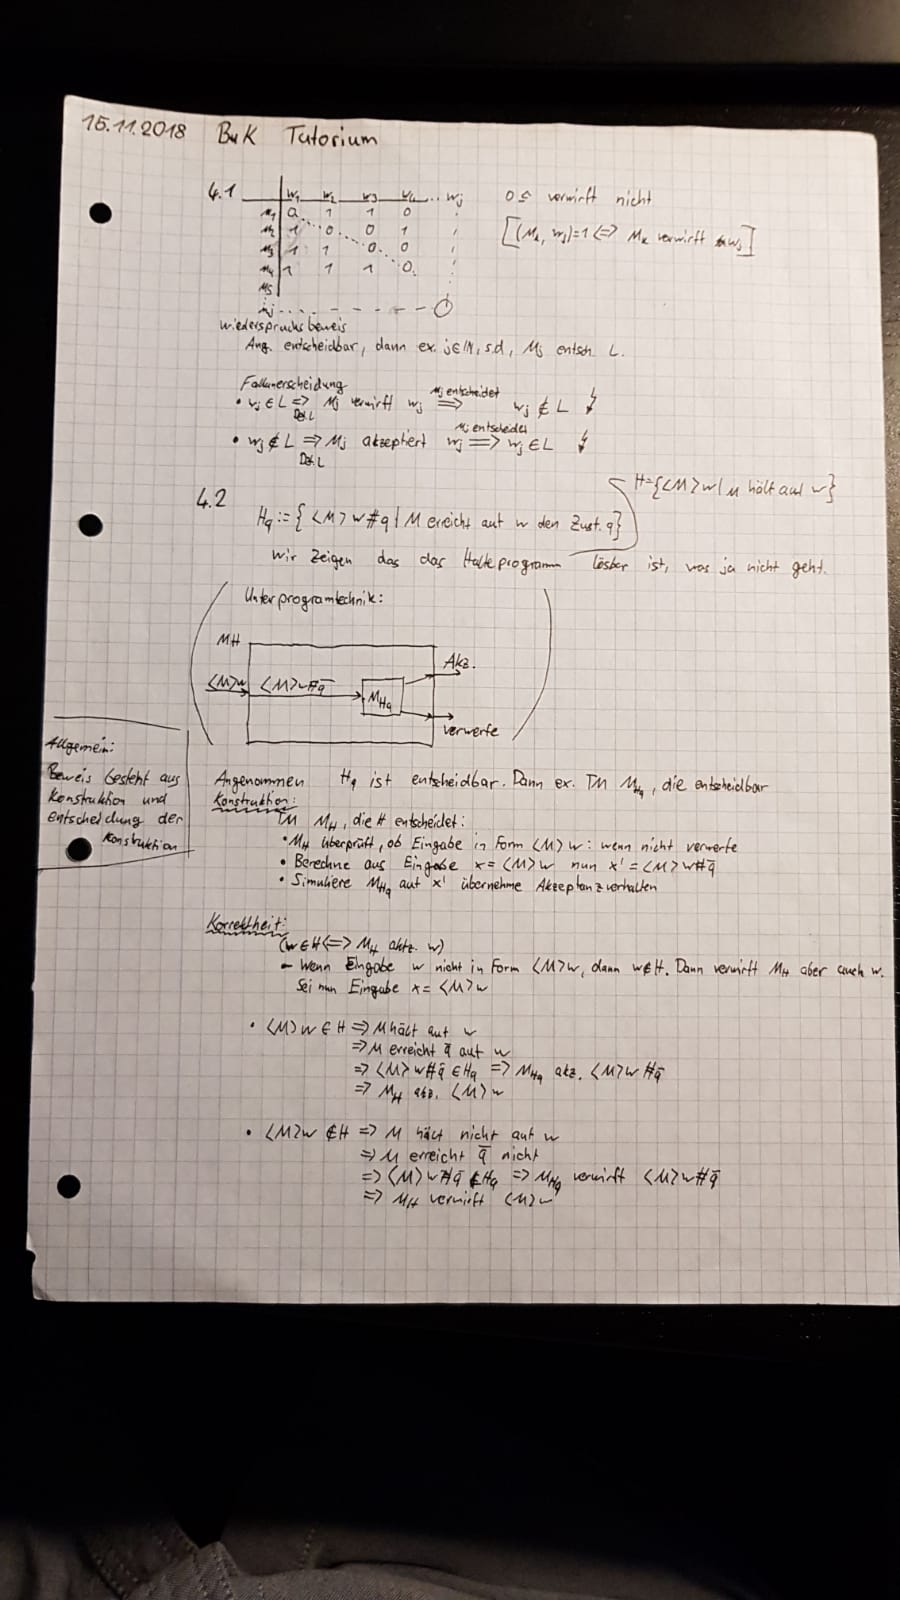 15.11.2018 BuK Tutorium
4.1 w1 w2 w3 w4 .. wj
M1 0 1 1 0
M2 1 0 0 1
M3 1 1 0 0
M4 1 1 1 0
M5
Mj
0 ≙ verwirft nicht
[(Mk, wj)=1 <=> Mk verwirft wj]
Wiederspruchsbeweis
Ang. entscheidbar, dann ex. j∈ℕ, s.d., Mj entsch. L.
Fallunerscheidung
• wj ∈ L => Def. L Mj verwirft wj Mj entscheidet ==> wj ∉ L ↯
• wj ∉ L => Def. L Mj akzeptiert wj Mj entscheidet ==> wj ∈ L ↯
H={⟨M⟩w | M hält auf w}
4.2
Hq := { ⟨M⟩ w#q | M erreicht auf w den Zust. q}
Wir zeigen das das Halteprogramm lösbar ist, was ja nicht geht.
Unterprogramtechnik:
MH
⟨M⟩w ⟨M⟩w#q̄ MHq Akz.
verwerfe
Allgemein:
Beweis besteht aus
Konstruktion und
entscheidung der
Konstruktion
Angenommen Hq ist entscheidbar. Dann ex. TM MHq, die entscheidbar
Konstruktion:
TM MH, die H entscheidet:
• MH überprüft, ob Eingabe in Form ⟨M⟩w: wenn nicht verwerfe
• Berechne aus Eingabe x=⟨M⟩w nun x' = ⟨M⟩w#q̄
• Simuliere MHq auf x' übernehme Akzeptanzverhalten
Korrektheit:
(w∈H <=> MH aktz. w)
- Wenn Eingabe w nicht in Form ⟨M⟩w, dann w∉H. Dann verwirft MH aber auch w.
Sei nun Eingabe x= ⟨M⟩w
• ⟨M⟩w ∈ H => M hält auf w
=> M erreicht q̄ auf w
=> ⟨M⟩w#q̄ ∈ Hq => MHq akz. ⟨M⟩w#q̄
=> MH akz. ⟨M⟩w
• ⟨M⟩w ∉ H => M hält nicht auf w
=> M erreicht q̄ nicht
=> ⟨M⟩w#q̄ ∉ Hq => MHq verwirft ⟨M⟩w#q̄
=> MH verwirft ⟨M⟩w